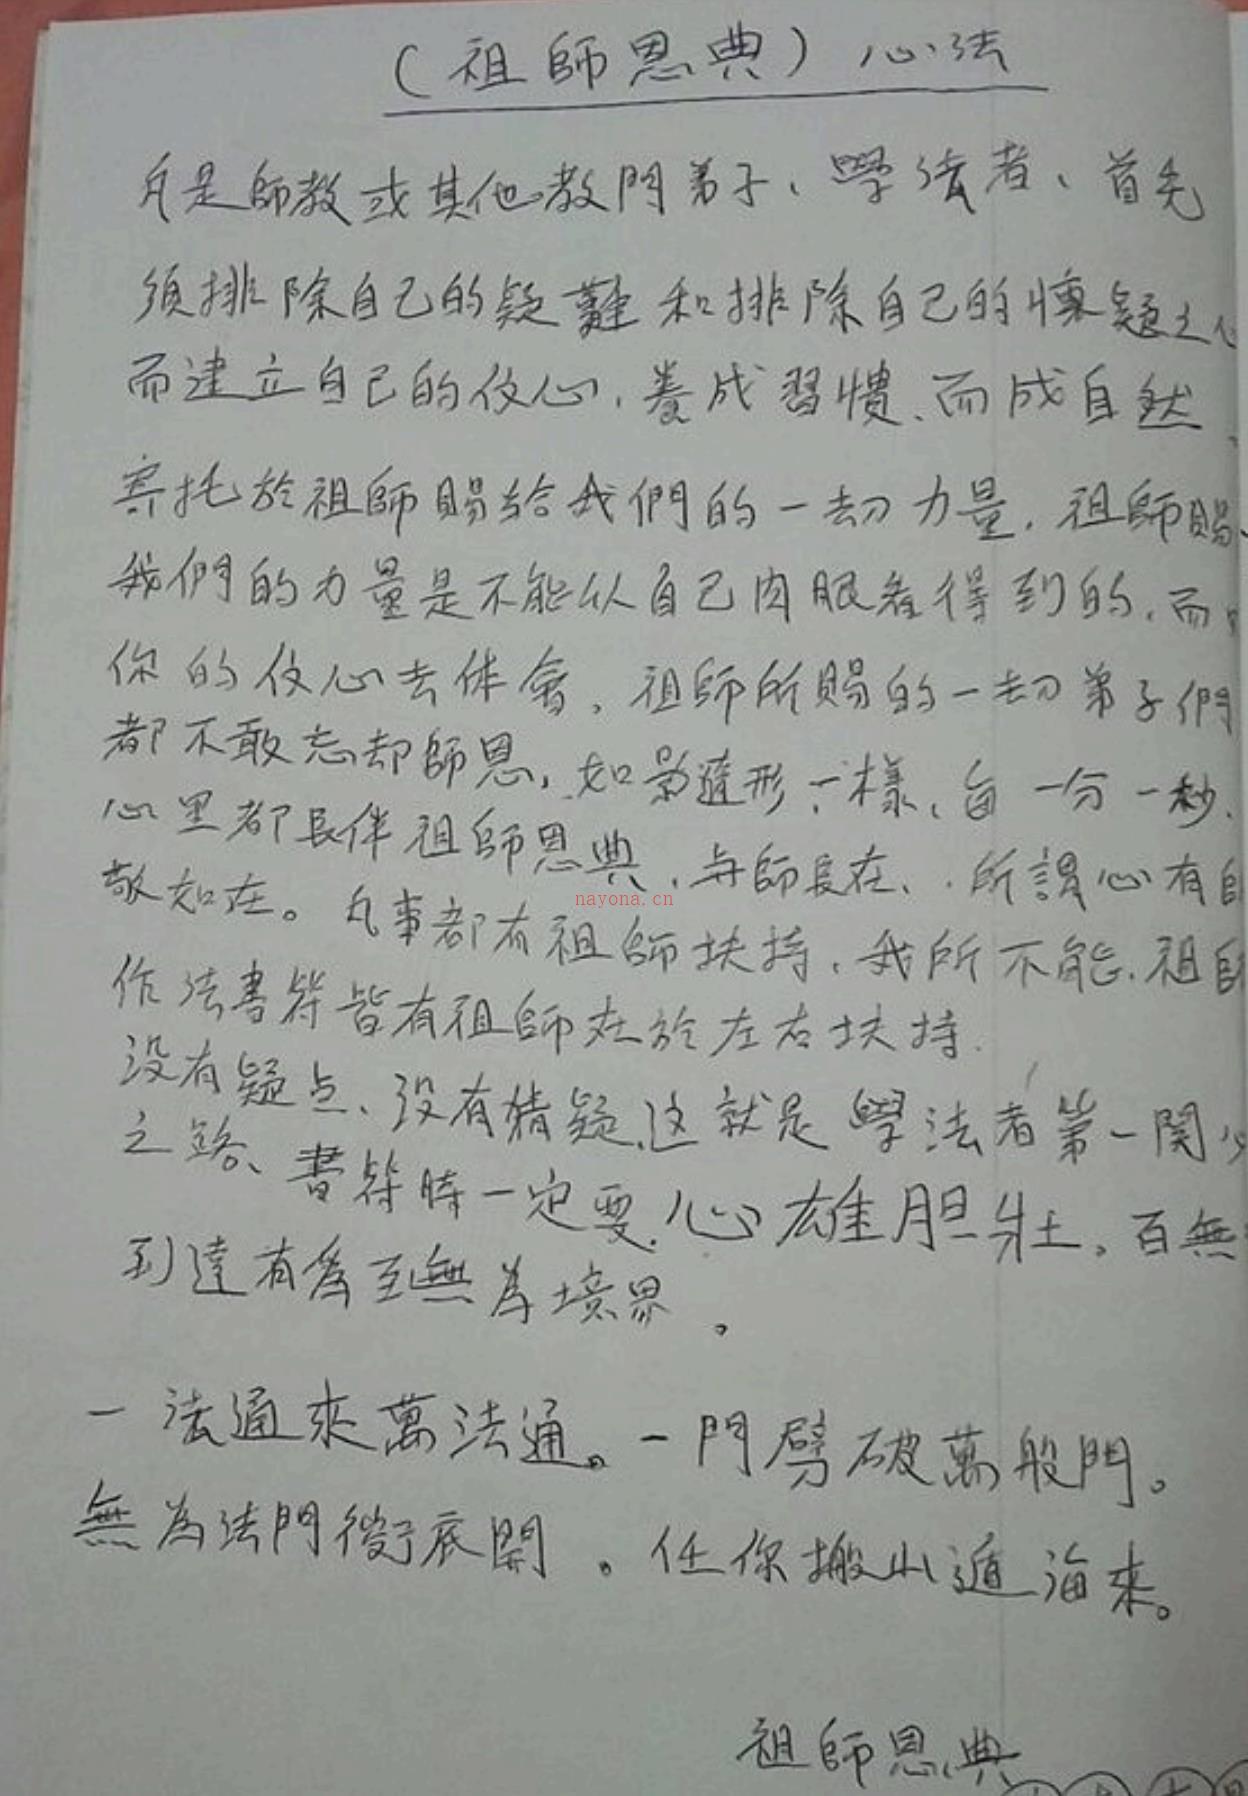 (祖師恩典)心法
凡是師教或其他教門弟子、學法者、首先
須排除自己的疑難和排除自己的懷疑之心
而建立自己的信心，養成習慣、而成自然、
寄托於祖師賜給我們的一切力量，祖師賜
我們的力量是不能从自己肉眼看得到的，而
你的信心去体會，祖師所賜的一切弟子們
都不敢忘却師恩，如影隨形一樣、每一分一秒、
心里都長伴祖師恩典，与師長在、所謂心有
敬如在。凡事都有祖師扶持，我所不能，祖師
作法書符皆有祖師在於左右扶持．
没有疑点、没有猜疑，这就是學法者第一関
之路、書符時一定要心雄胆壯。百無
到達有為至無為境界。
一法通來萬法通。一門劈破萬般門。
無為法門徹底開。任你搬山遁海來。
祖師恩典
nayona.cn